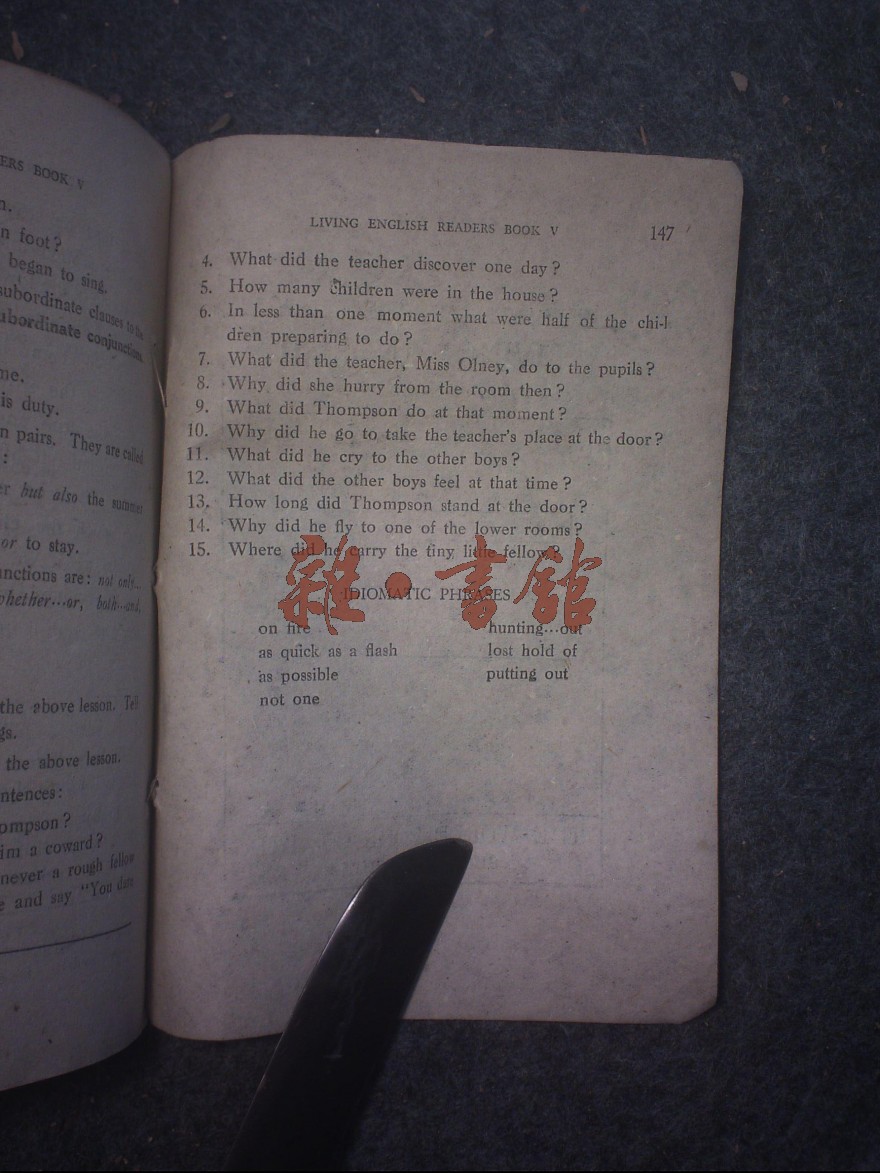 ERS BOOK V
n.
n foot?
began to sing.
subordinate clauses to the
ubordinate conjunction
me.
is duty.
n pairs. They are called
:
er but also the summer
or to stay.
nctions are: not only...
whether...or, both...and,
the above lesson. Tell
gs.
the above lesson.
ntences:
ompson?
im a coward?
never a rough fellow
e and say "You dare
LIVING ENGLISH READERS BOOK V 147
4. What did the teacher discover one day?
5. How many children were in the house?
6. In less than one moment what were half of the chi-l
dren preparing to do?
7. What did the teacher, Miss Olney, do to the pupils?
8. Why did she hurry from the room then?
9. What did Thompson do at that moment?
10. Why did he go to take the teacher's place at the door?
11. What did he cry to the other boys?
12. What did the other boys feel at that time?
13. How long did Thompson stand at the door?
14. Why did he fly to one of the lower rooms?
15. Where did he carry the tiny little fellow?
雜·書館
IDIOMATIC PHRASES
on fire hunting...out
as quick as a flash lost hold of
as possible putting out
not one